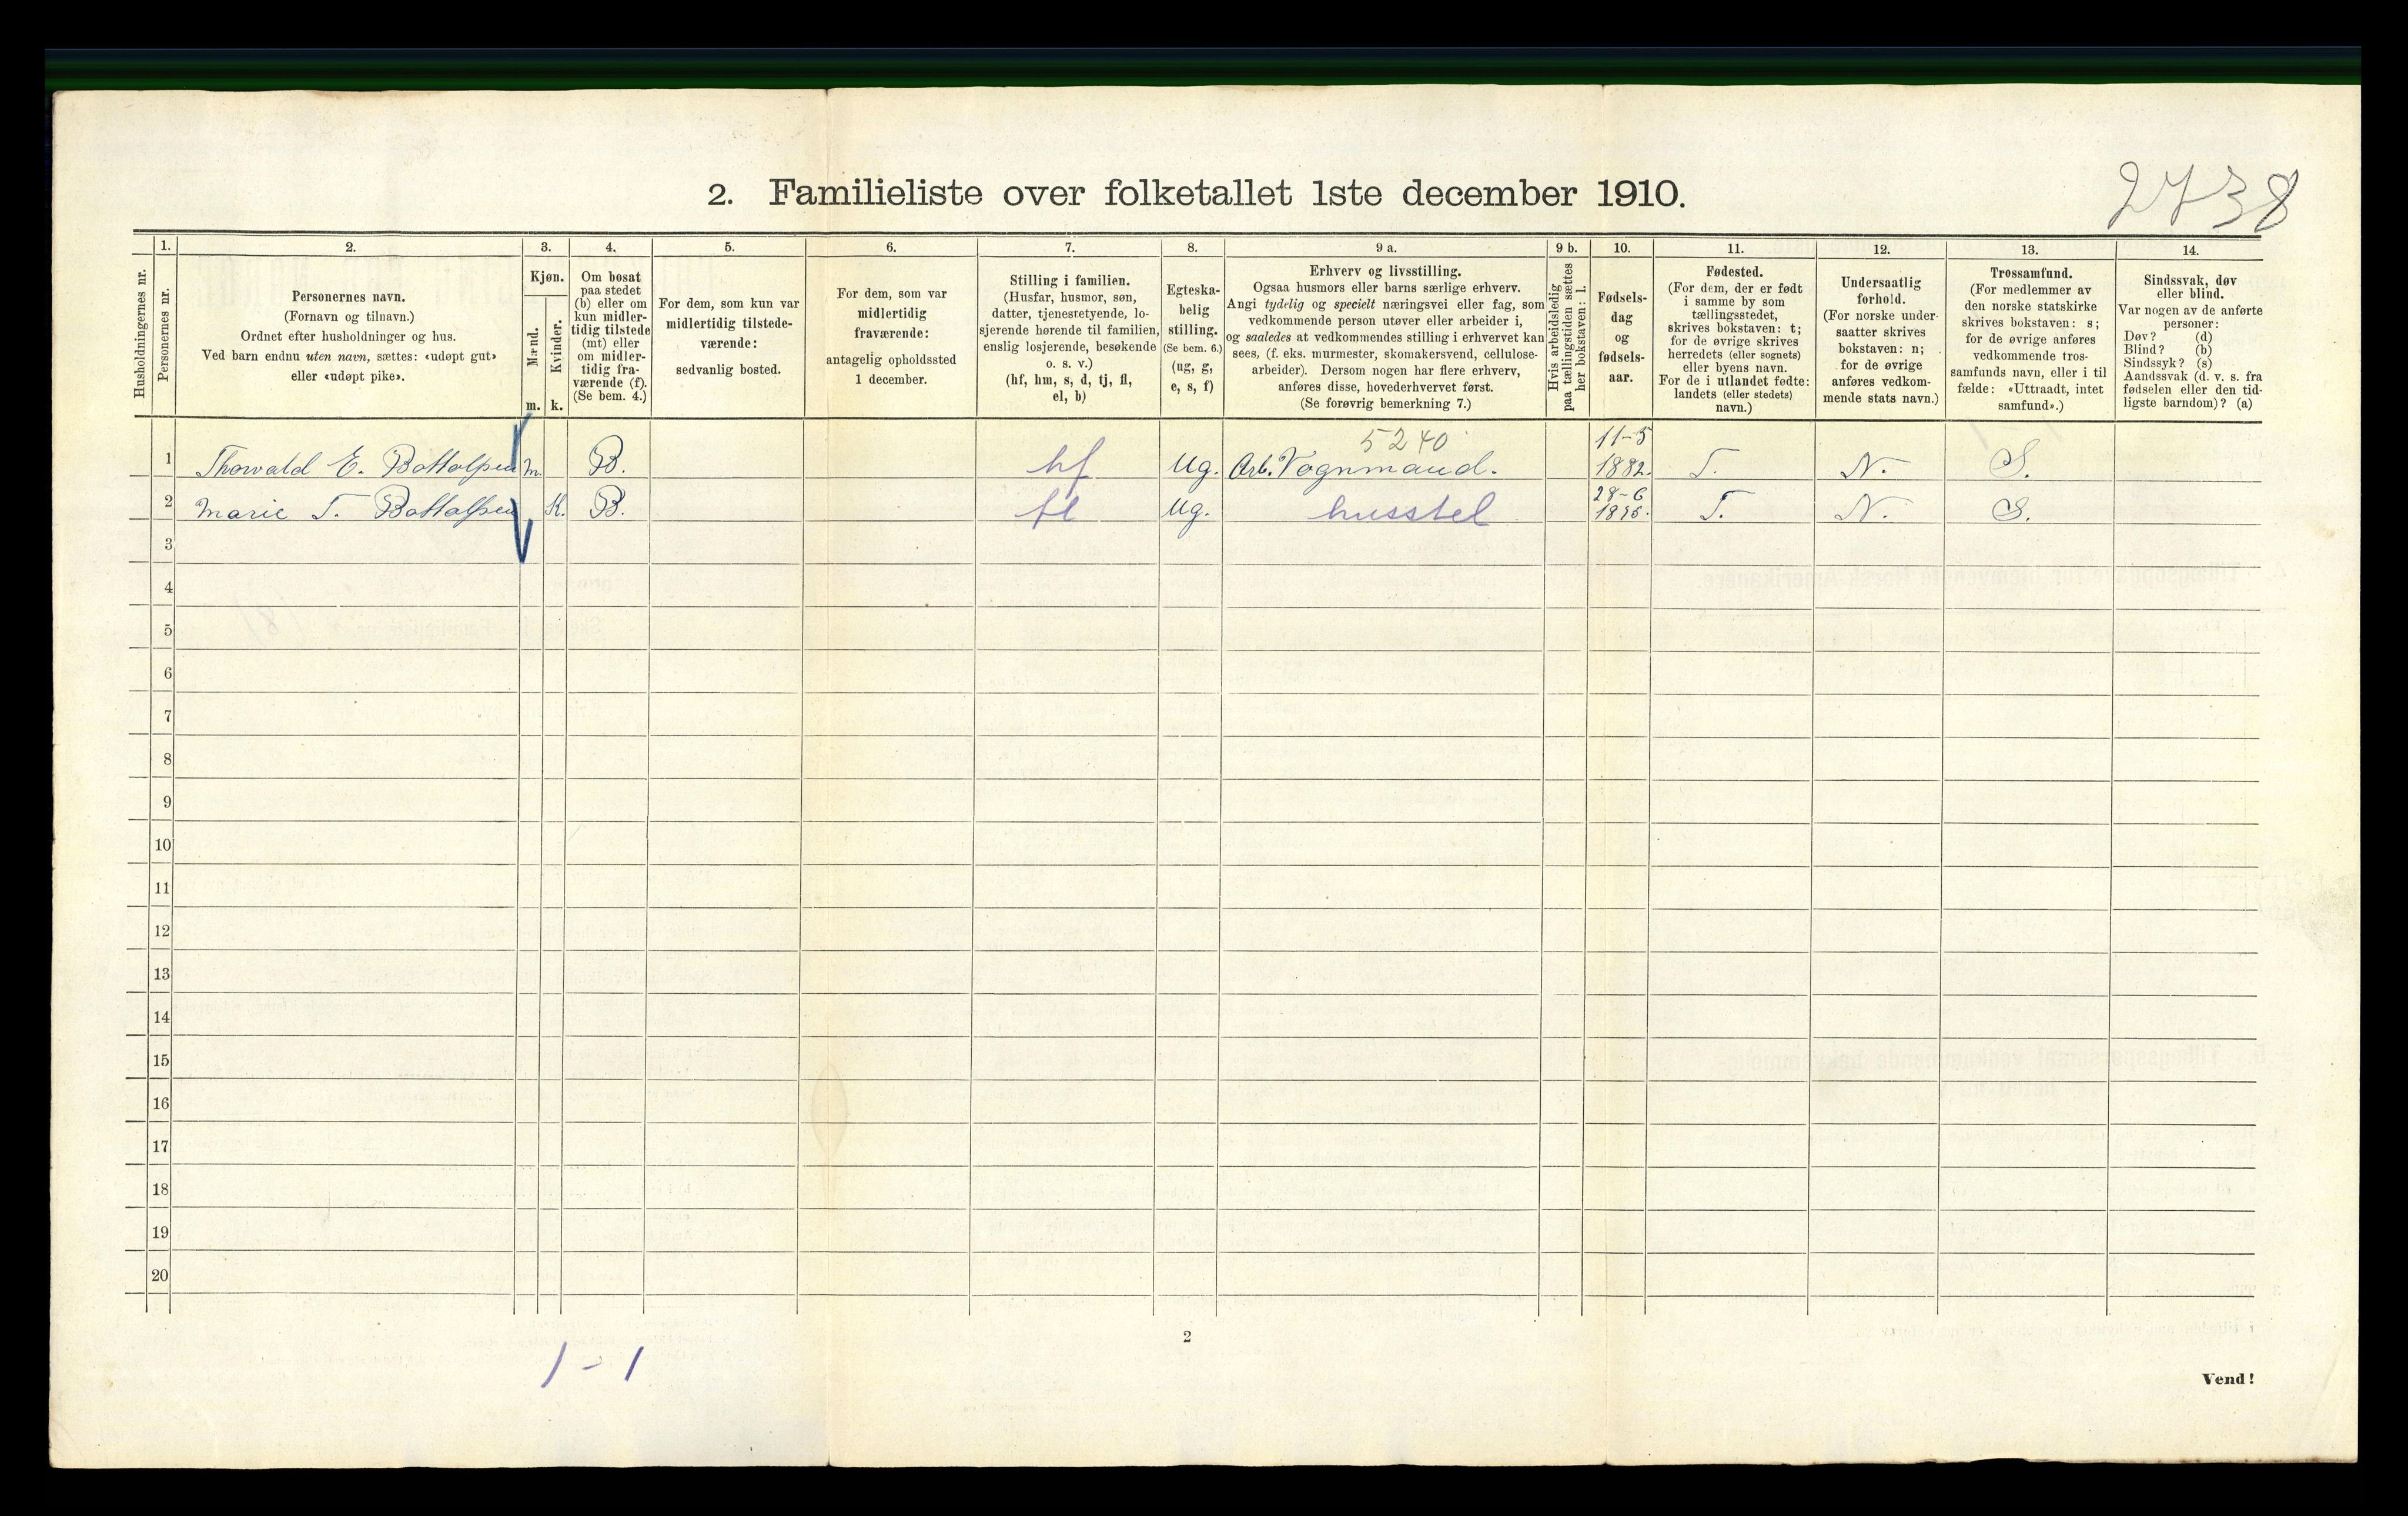 2738
2. Familieliste over folketallet 1ste december 1910.
Husholdningernes nr.
1.
Personernes nr.
2.
Personernes navn.
(Fornavn og tilnavn.)
Ordnet efter husholdninger og hus.
Ved barn endnu uten navn, sættes: «udøpt gut»
eller «udøpt pike».
3.
Kjøn.
Mænd.
m.
Kvinder.
k.
4.
Om bosat
paa stedet
(b) eller om
kun midler-
tidig tilstede
(mt) eller
om midler-
tidig fra-
værende (f).
(Se bem. 4.)
5.
For dem, som kun var
midlertidig tilstede-
værende:
sedvanlig bosted.
6.
For dem, som var
midlertidig
fraværende:
antagelig opholdssted
1 december.
7.
Stilling i familien.
(Husfar, husmor, søn,
datter, tjenestetyende, lo-
sjerende hørende til familien,
enslig losjerende, besøkende
o. s. v.)
(hf, hm, s, d, tj, fl,
el, b)
8.
Egteska-
belig
stilling.
(Se bem. 6.)
(ug, g,
e, s, f)
9 a.
Erhverv og livsstilling.
Ogsaa husmors eller barns særlige erhverv.
Angi tydelig og specielt næringsvei eller fag, som
vedkommende person utøver eller arbeider i,
og saaledes at vedkommendes stilling i erhvervet kan
sees, (f. eks. murmester, skomakersvend, cellulose-
arbeider). Dersom nogen har flere erhverv,
anføres disse, hovederhvervet først.
(Se forøvrig bemerkning 7.)
9 b.
Hvis arbeidsledig
paa tællingstiden sættes
her bokstaven: l.
10.
Fødsels-
dag
og
fødsels-
aar.
11.
Fødested.
(For dem, der er født
i samme by som
tællingsstedet,
skrives bokstaven: t;
for de øvrige skrives
herredets (eller sognets)
eller byens navn.
For de i utlandet fødte:
landets (eller stedets)
navn.)
12.
Undersaatlig
forhold.
(For norske under-
saatter skrives
bokstaven: n;
for de øvrige
anføres vedkom-
mende stats navn.)
13.
Trossamfund.
(For medlemmer av
den norske statskirke
skrives bokstaven: s;
for de øvrige anføres
vedkommende tros-
samfunds navn, eller i til
fælde: «Uttraadt, intet
samfund».)
14.
Sindssvak, døv
eller blind.
Var nogen av de anførte
personer:
Døv? (d)
Blind? (b)
Sindssyk? (s)
Aandssvak (d. v. s. fra
fødselen eller den tid-
ligste barndom)? (a)
1 Thorvald E. Bottolfsen m. B. hf Ug. Arb. Vognmand. 5240 11-5 1882. T. N. S.
2 Marie T. Bottolfsen K. B. fl Ug. husstel 28-6 T. N. S.
3
4
5
6
7
8
9
10
11
12
13
14
15
16
17
18
19
20
2
1-1
Vend!